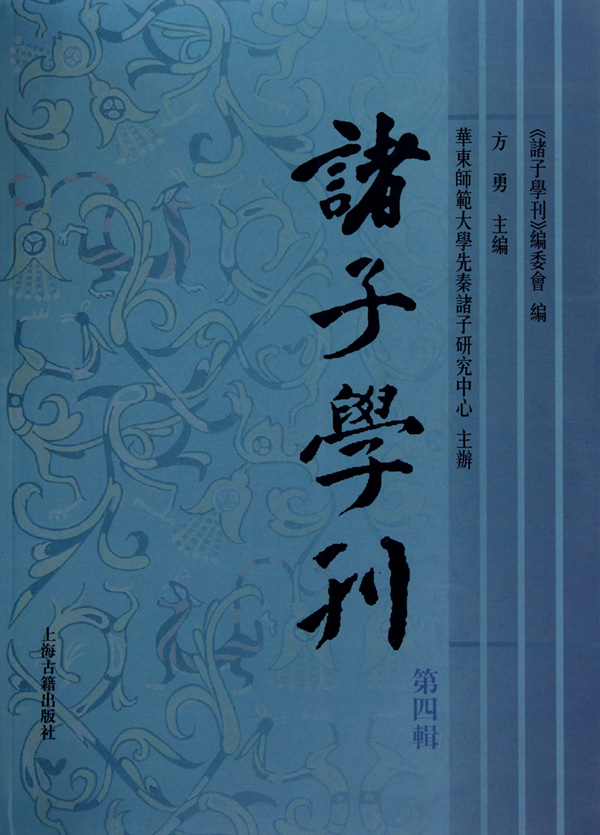 《諸子學刊》編委會 編
方勇 主編
華東師範大學先秦諸子研究中心 主辦
諸子學刊
第四輯
上海古籍出版社